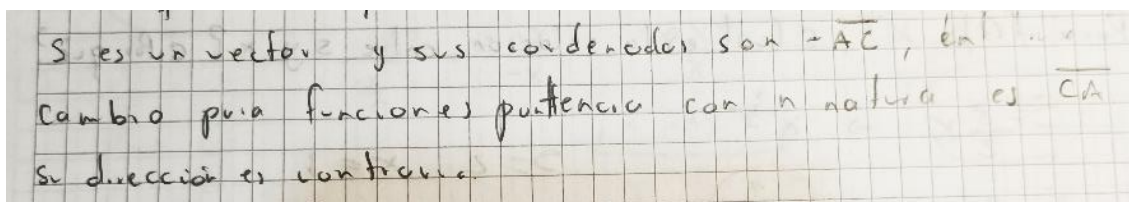 S es un vector y sus cordenadas son - AC, en
cambio para funciones puttencia con n natura es CA
su dirección es contraria.